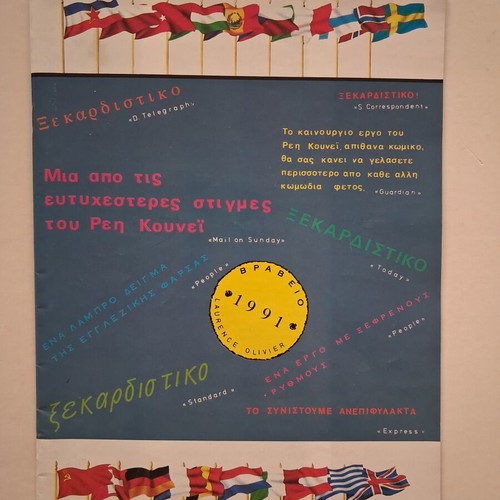 Ξεκαρδιστικο
«D. Telegraph»
ΞΕΚΑΡΔΙΣΤΙΚΟ!
«S. Correspondent»
Το καινουργιο εργο του
Ρεη Κουνεϊ, απιθανα κωμικο,
θα σας κανει να γελασετε
περισσοτερο απο καθε αλλη
κωμωδια φετος. «Guardian»
Μια απο τις
ευτυχεστερες στιγμες
του Ρεη Κουνεϊ
«Mail on Sunday»
ΞΕΚΑΡΔΙΣΤΙΚΟ
«Today»
ΕΝΑ ΛΑΜΠΡΟ ΔΕΙΓΜΑ
ΤΗΣ ΕΓΓΛΕΖΙΚΗΣ ΦΑΡΣΑΣ
«People»
ΒΡΑΒΕΙΟ
1991
LAURENCE OLIVIER
ΕΝΑ ΕΡΓΟ ΜΕ ΞΕΦΡΕΝΟΥΣ
ΡΥΘΜΟΥΣ
«People»
ξεκαρδιστικο
«Standard»
ΤΟ ΣΥΝΙΣΤΟΥΜΕ ΑΝΕΠΙΦΥΛΑΚΤΑ
«Express»